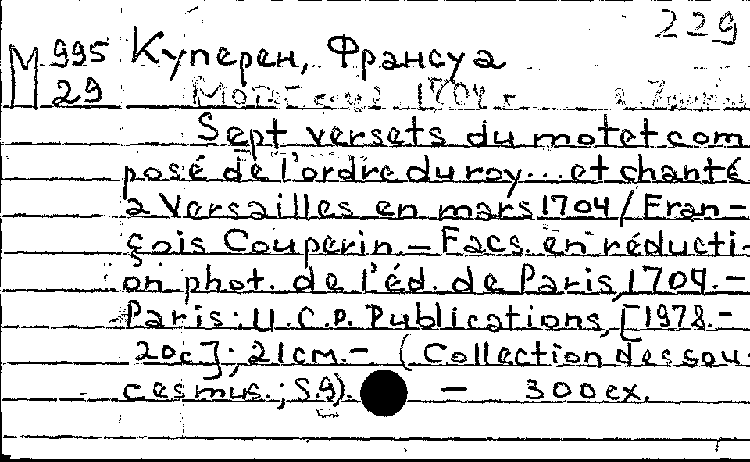 229
М 995 Куперен, Франсуа
29 Мотет 1704 г.
Sept versets du motet com
posé de l'ordre du roy... et chanté
a Versailles en mars 1704 / Fran-
çois Couperin. – Facs. en réducti-
on phot. de l'éd. de Paris, 1704. –
Paris: U.C.P. Publications, [1978. –
20c]; 21cm. – (Collection des sou
ces mus.; S.9). – 300 ex.